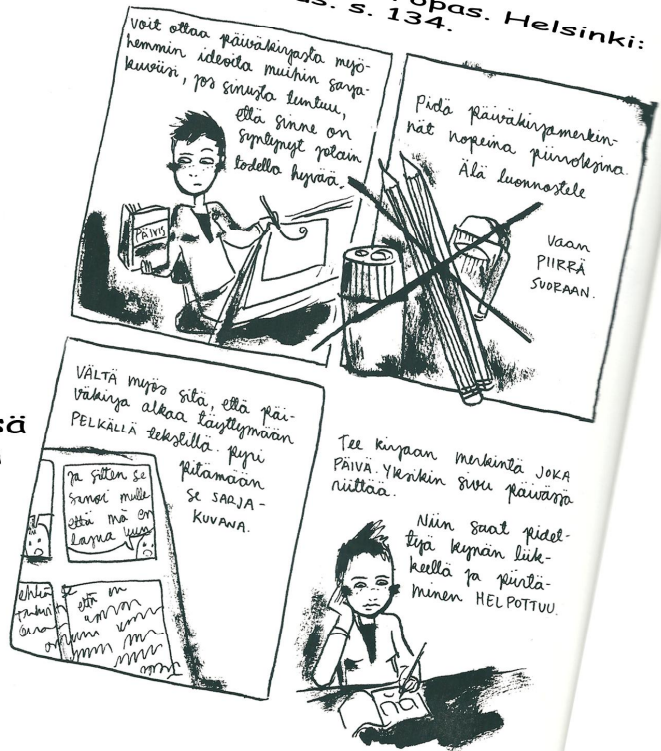 opas. Helsinki:
s. 134.
Voit ottaa päiväkirjasta myö-
hemmin ideoita muihin sarja-
kuviisi, jos sinusta tuntuu,
että sinne on
syntynyt jotain
todella hyvää.
PÄIVIS
Pidä päiväkirjamerkin-
nät nopeina piirroksina.
Älä luonnostele
vaan
PIIRRÄ
SUORAAN.
VÄLTÄ myös sitä, että päi-
väkirja alkaa täyttymään
PELKÄLLÄ tekstillä. Pyri
pitämään
se SARJA-
KUVANA.
sä
ja sitten se
sanoi mulle
että mä en
lapua kun
ehkä
että en
Tee kirjaan merkintä JOKA
PÄIVÄ. Yksikin sivu päivässä
riittää.
Niin saat pidet-
tyä kynän liik-
keellä ja piirtä-
minen HELPOTTUU.